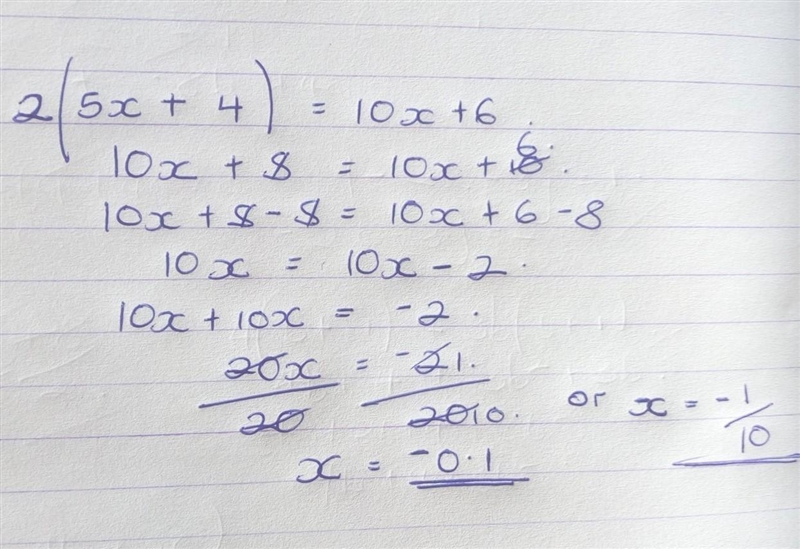 2(5x + 4) = 10x + 6.
10x + 8 = 10x + 6.
10x + 8 - 8 = 10x + 6 - 8
10x = 10x - 2.
10x + 10x = -2.
20x = -21.
20 2010. or x = -1/10
x = -0.1